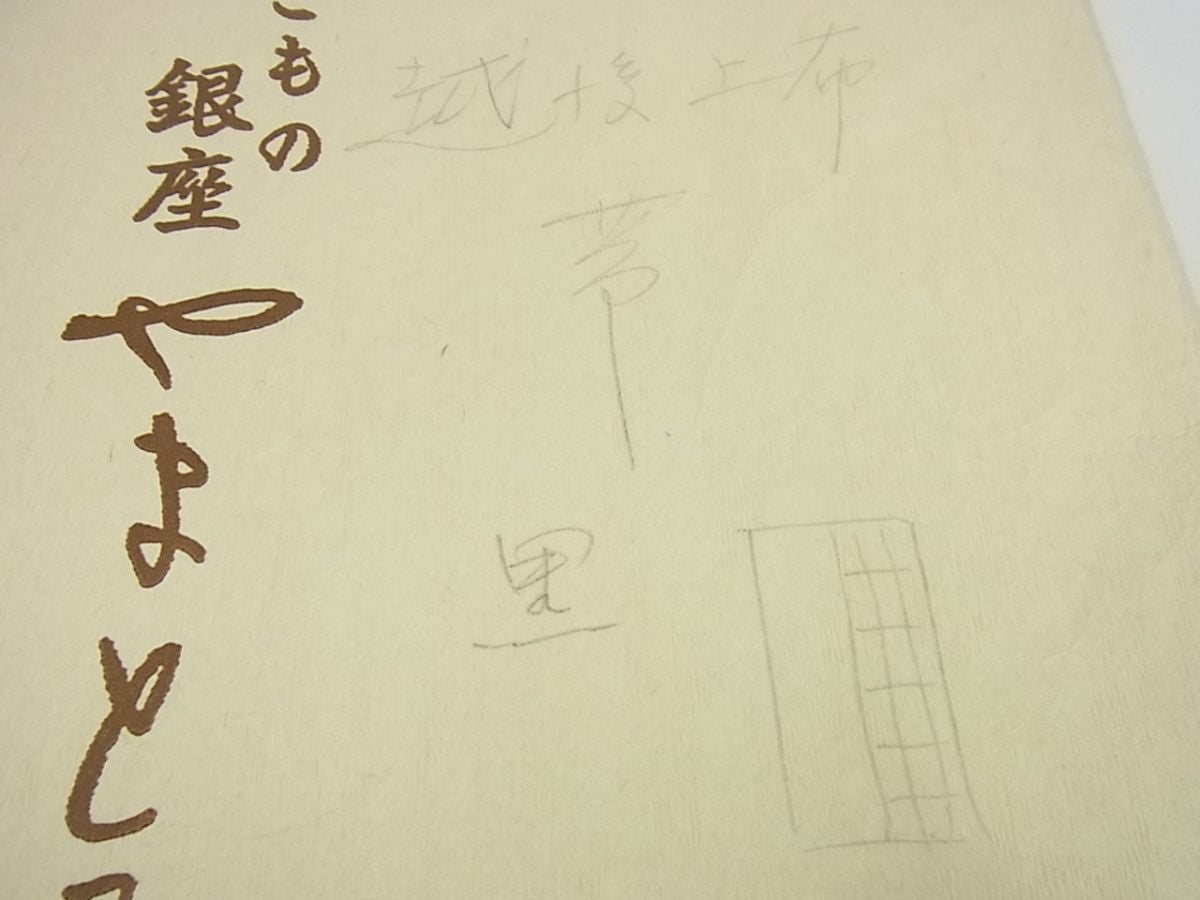 もの
銀座
やまと
越後上布
帯
黒